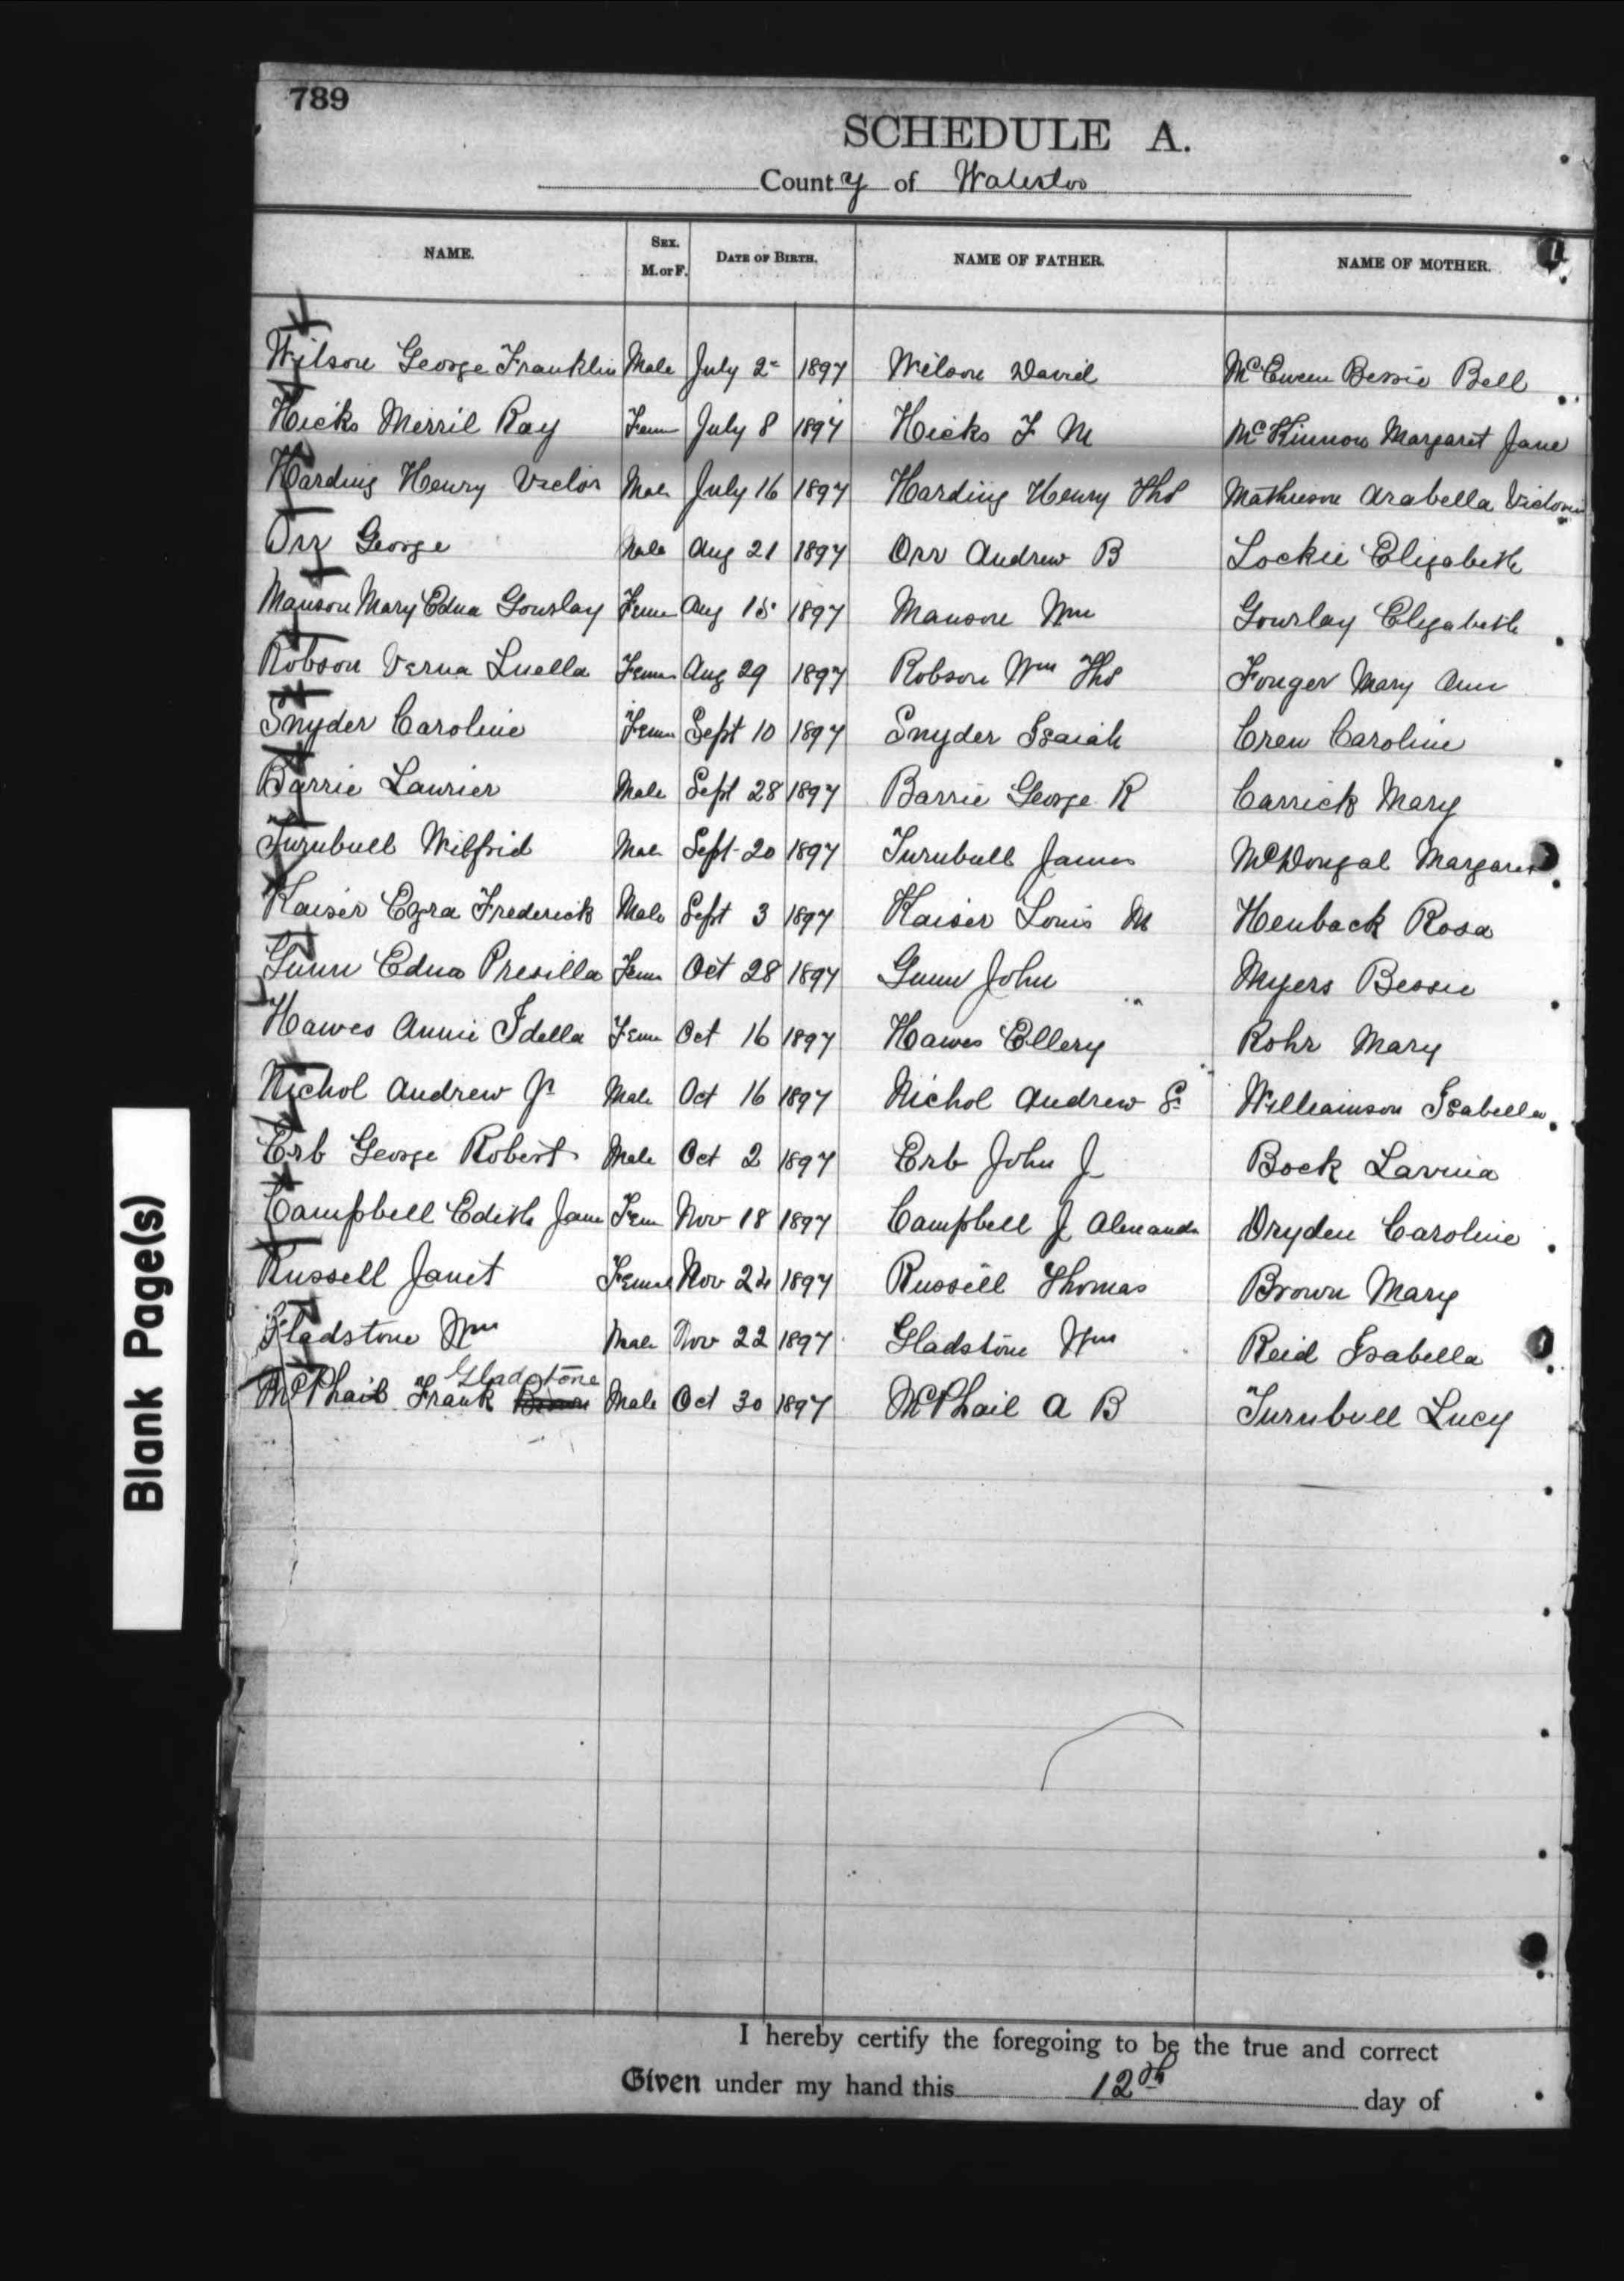 789
SCHEDULE A.
County of Waterloo
NAME. SEX. M. or F. DATE OF BIRTH. NAME OF FATHER. NAME OF MOTHER.
Wilson George Franklin Male July 2 1897 Wilson David McEwen Bessie Bell
Hicks Merril Ray Fem July 8 1897 Hicks F M McKinnon Margaret Jane
Harding Henry Victor Male July 16 1897 Harding Henry Thos Mathieson Arabella Victoria
Orr George Male Aug 21 1897 Orr Andrew B Lockie Elizabeth
Manson Mary Edna Gourlay Fem Aug 15 1897 Manson Wm Gourlay Elizabeth
Robson Verna Luella Fem Aug 29 1897 Robson Wm Thos Fonger Mary Ann
Snyder Caroline Fem Sept 10 1897 Snyder Isaiah Cren Caroline
Barrie Laurier Male Sept 28 1897 Barrie George R Carrick Mary
Turnbull Wilfrid Male Sept 20 1897 Turnbull James McDougal Margaret
Kaiser Ezra Frederick Male Sept 3 1897 Kaiser Louis M Henback Rosa
Gunn Edna Presilla Fem Oct 28 1897 Gunn John Myers Bessie
Hawes Annie Idella Fem Oct 16 1897 Hawes Ellery Rohr Mary
Nichol Andrew Jr Male Oct 16 1897 Nichol Andrew Sr Williamson Isabella
Erb George Robert Male Oct 2 1897 Erb John J Bock Lavina
Campbell Edith Jane Fem Nov 18 1897 Campbell J Dryden Caroline
Russell Janet Female Nov 24 1897 Russell Thomas Brown Mary
Gladstone Wm Male Nov 22 1897 Gladstone Wm Reid Isabella
Gladstone
McPhail Frank Male Oct 30 1897 McPhail A B Turnbull Lucy
Blank Page(s)
I hereby certify the foregoing to be the true and correct
Given under my hand this 12th day of